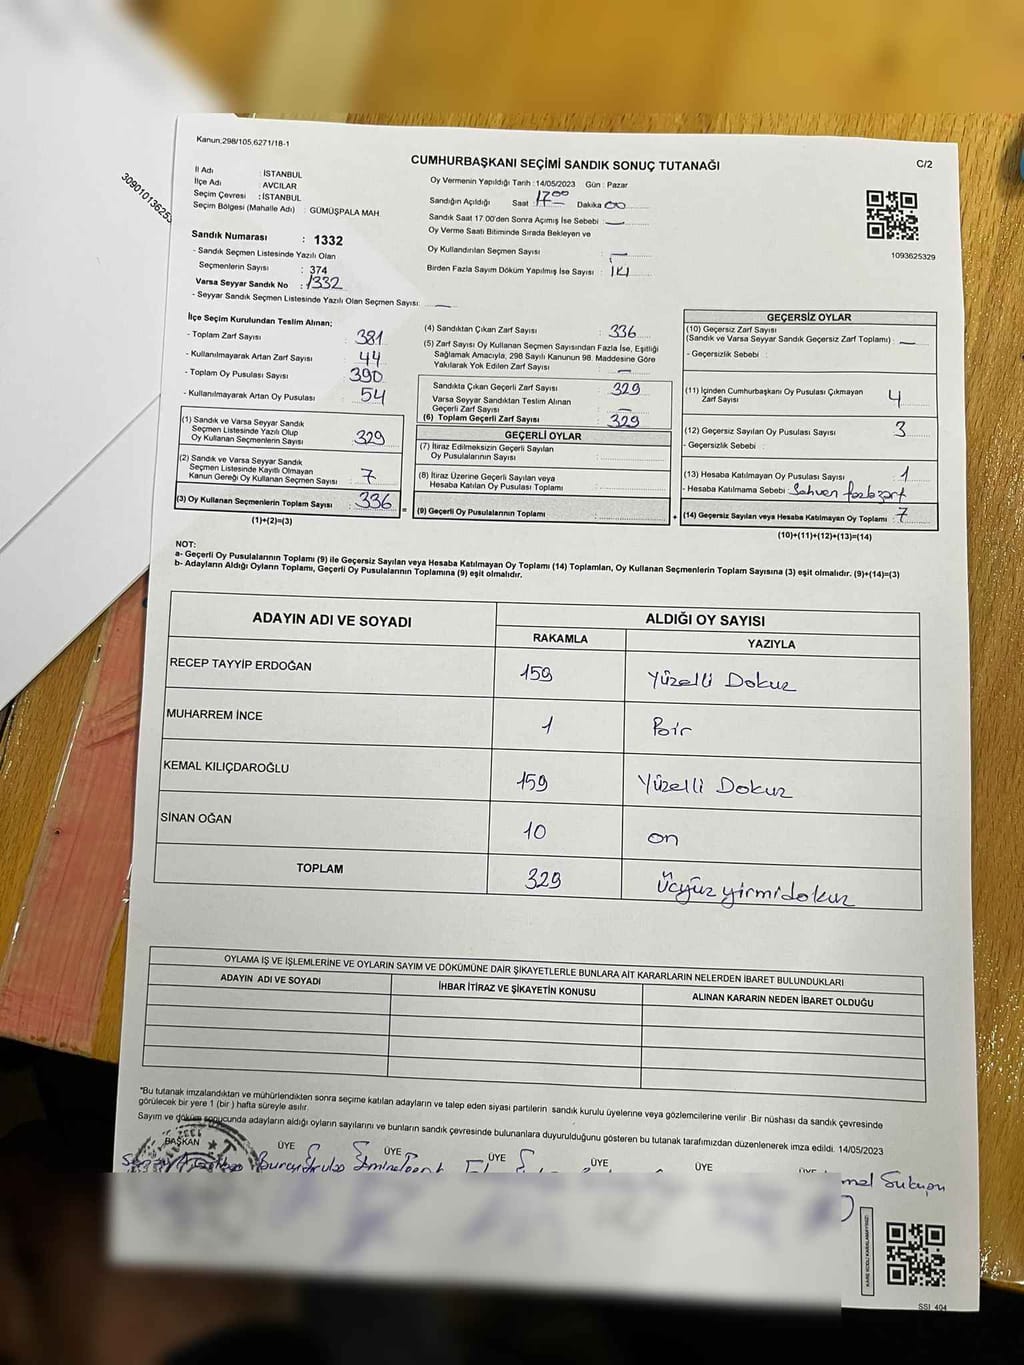 Kanun:298/105,6271/18-1
CUMHURBAŞKANI SEÇİMİ SANDIK SONUÇ TUTANAĞI
C/2
İl Adı : İSTANBUL
İlçe Adı : AVCILAR
Seçim Çevresi : İSTANBUL
Seçim Bölgesi (Mahalle Adı) : GÜMÜŞPALA MAH.
Sandık Numarası : 1332
- Sandık Seçmen Listesinde Yazılı Olan
Seçmenlerin Sayısı : 374
Varsa Seyyar Sandık No : 1332
- Seyyar Sandık Seçmen Listesinde Yazılı Olan Seçmen Sayısı: —
Oy Vermenin Yapıldığı Tarih : 14/05/2023 Gün : Pazar
Sandığın Açıldığı Saat 17:00 Dakika 00
Sandık Saat 17.00'den Sonra Açılmış İse Sebebi : —
Oy Verme Saati Bitiminde Sırada Bekleyen ve
Oy Kullandırılan Seçmen Sayısı : —
Birden Fazla Sayım Döküm Yapılmış İse Sayısı : İki
1093625329
İlçe Seçim Kurulundan Teslim Alınan;
- Toplam Zarf Sayısı : 381
- Kullanılmayarak Artan Zarf Sayısı : 44
- Toplam Oy Pusulası Sayısı : 390
- Kullanılmayarak Artan Oy Pusulası : 54
(1) Sandık ve Varsa Seyyar Sandık
Seçmen Listesinde Yazılı Olup
Oy Kullanan Seçmenlerin Sayısı : 329
(2) Sandık ve Varsa Seyyar Sandık
Seçmen Listesinde Kayıtlı Olmayan
Kanun Gereği Oy Kullanan Seçmen Sayısı : 7
(3) Oy Kullanan Seçmenlerin Toplam Sayısı : 336
(1)+(2)=(3)
(4) Sandıktan Çıkan Zarf Sayısı : 336
(5) Zarf Sayısı Oy Kullanan Seçmen Sayısından Fazla İse, Eşitliği
Sağlamak Amacıyla, 298 Sayılı Kanunun 98. Maddesine Göre
Yakılarak Yok Edilen Zarf Sayısı : —
Sandıkta Çıkan Geçerli Zarf Sayısı : 329
Varsa Seyyar Sandıktan Teslim Alınan
Geçerli Zarf Sayısı : —
(6) Toplam Geçerli Zarf Sayısı : 329
GEÇERLİ OYLAR
(7) İtiraz Edilmeksizin Geçerli Sayılan
Oy Pusulalarının Sayısı :
(8) İtiraz Üzerine Geçerli Sayılan veya
Hesaba Katılan Oy Pusulası Toplamı :
= (9) Geçerli Oy Pusulalarının Toplamı :
GEÇERSİZ OYLAR
(10) Geçersiz Zarf Sayısı
(Sandık ve Varsa Seyyar Sandık Geçersiz Zarf Toplamı) : —
- Geçersizlik Sebebi :
(11) İçinden Cumhurbaşkanı Oy Pusulası Çıkmayan
Zarf Sayısı : 4
(12) Geçersiz Sayılan Oy Pusulası Sayısı : 3
- Geçersizlik Sebebi :
(13) Hesaba Katılmayan Oy Pusulası Sayısı : 1
- Hesaba Katılmama Sebebi : Sehven fazla zarf
+ (14) Geçersiz Sayılan veya Hesaba Katılmayan Oy Toplamı : 7
(10)+(11)+(12)+(13)=(14)
NOT:
a- Geçerli Oy Pusulalarının Toplamı (9) ile Geçersiz Sayılan veya Hesaba Katılmayan Oy Toplamı (14) Toplamları, Oy Kullanan Seçmenlerin Toplam Sayısına (3) eşit olmalıdır. (9)+(14)=(3)
b- Adayların Aldığı Oyların Toplamı, Geçerli Oy Pusulalarının Toplamına (9) eşit olmalıdır.
ADAYIN ADI VE SOYADI ALDIĞI OY SAYISI
RAKAMLA YAZIYLA
RECEP TAYYİP ERDOĞAN 159 Yüzelli Dokuz
MUHARREM İNCE 1 Bir
KEMAL KILIÇDAROĞLU 159 Yüzelli Dokuz
SİNAN OĞAN 10 on
TOPLAM 329 Üçyüz yirmidokuz
OYLAMA İŞ VE İŞLEMLERİNE VE OYLARIN SAYIM VE DÖKÜMÜNE DAİR ŞİKAYETLERLE BUNLARA AİT KARARLARIN NELERDEN İBARET BULUNDUKLARI
ADAYIN ADI VE SOYADI İHBAR İTİRAZ VE ŞİKAYETİN KONUSU ALINAN KARARIN NEDEN İBARET OLDUĞU
*Bu tutanak imzalandıktan ve mühürlendikten sonra seçime katılan adayların ve talep eden siyasi partilerin sandık kurulu üyelerine veya gözlemcilerine verilir. Bir nüshası da sandık çevresinde
görülecek bir yere 1 (bir ) hafta süreyle asılır.
Sayım ve döküm sonucunda adayların aldığı oyların sayılarını ve bunların sandık çevresinde bulunanlara duyurulduğunu gösteren bu tutanak tarafımızdan düzenlenerek imza edildi. 14/05/2023
BAŞKAN ÜYE ÜYE ÜYE ÜYE ÜYE
1332
SSI 404